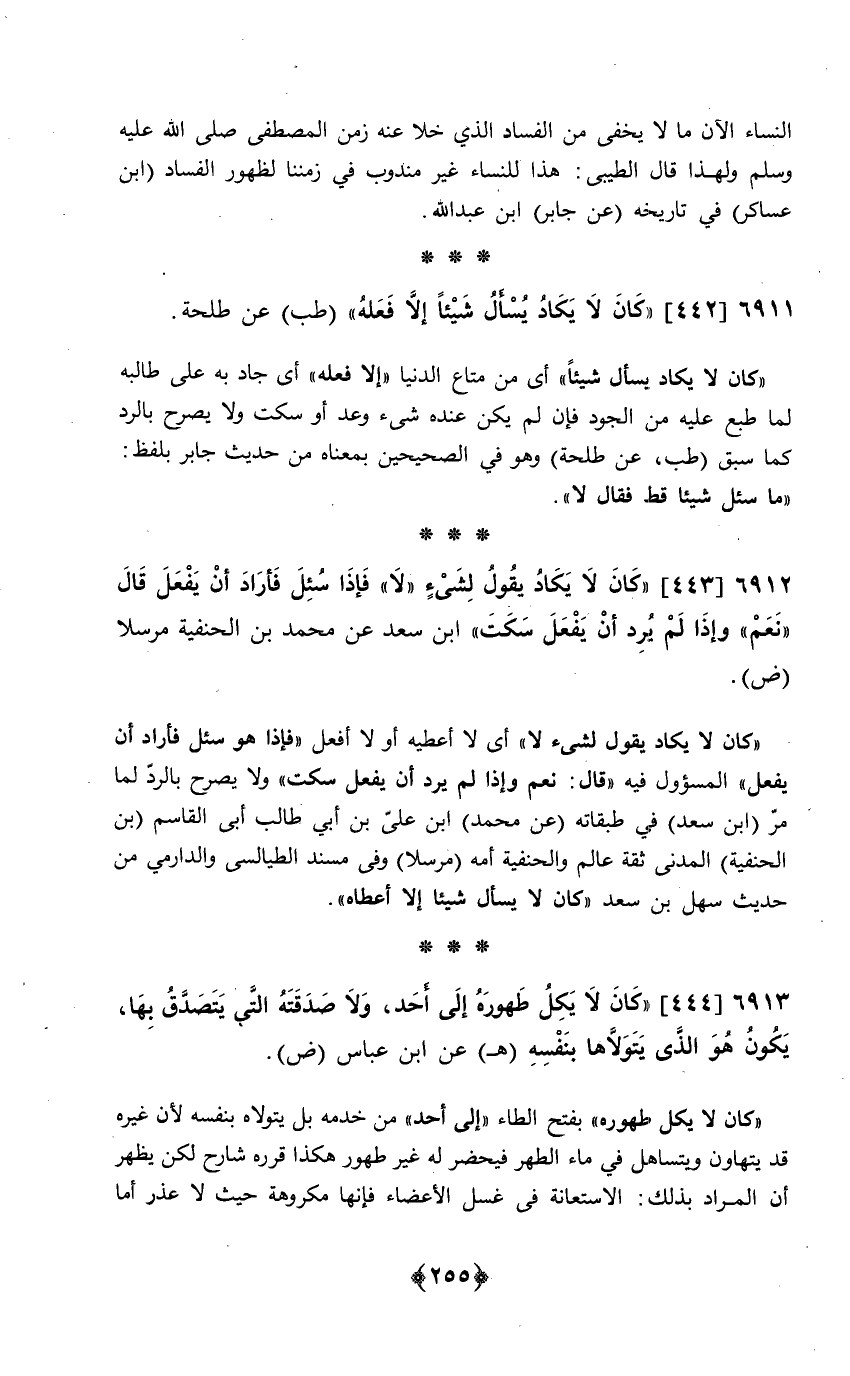 النساء الآن ما لا يخفى من الفساد الذي خلا عنه زمن المصطفى صلى الله عليه
وسلم ولهـذا قال الطيبى: هذا للنساء غير مندوب في زمننا لظهور الفساد (ابن
عساكر) في تاريخه (عن جابر) ابن عبدالله.
* * *
٦٩١١ [٤٤٢] «كَانَ لَا يَكَادُ يُسْأَلُ شَيْئاً إلَّا فَعَلهُ» (طب) عن طلحة.
«كان لا يكاد يسأل شيئاً» أى من متاع الدنيا «إلا فعله» أى جاد به على طالبه
لما طبع عليه من الجود فإن لم يكن عنده شىء وعد أو سكت ولا يصرح بالرد
كما سبق (طب، عن طلحة) وهو في الصحيحين بمعناه من حديث جابر بلفظ:
«ما سئل شيئا قط فقال لا».
* * *
٦٩١٢ [٤٤٣] «كَانَ لَا يَكَادُ يقُولُ لِشَىْءٍ «لَا» فَإذَا سُئِلَ فَأرَادَ أنْ يَفْعَلَ قَالَ
«نَعَمْ» وإذَا لَمْ يُرِد أنْ يَفْعَلَ سَكَتَ» ابن سعد عن محمد بن الحنفية مرسلا
(ض).
«كان لا يكاد يقول لشىء لا» أى لا أعطيه أو لا أفعل «فإذا هو سئل فأراد أن
يفعل» المسؤول فيه «قال: نعم وإذا لم يرد أن يفعل سكت» ولا يصرح بالردّ لما
مرّ (ابن سعد) في طبقاته (عن محمد) ابن علىّ بن أبي طالب أبى القاسم (بن
الحنفية) المدنى ثقة عالم والحنفية أمه (مرسلا) وفى مسند الطيالسى والدارمي من
حديث سهل بن سعد «كان لا يسأل شيئا إلا أعطاه».
* * *
٦٩١٣ [٤٤٤] «كَانَ لَا يَكِلُ طَهورَهُ إلَى أَحَد، وَلَا صَدَقَتَهُ التَّي يَتَصَدَّقُ بِهَا،
يَكُونُ هُوَ الذَّى يَتَوَلاَّها بنَفْسِهِ (هـ) عن ابن عباس (ض).
«كان لا يكل طهوره» بفتح الطاء «إلى أحد» من خدمه بل يتولاه بنفسه لأن غيره
قد يتهاون ويتساهل في ماء الطهر فيحضر له غير طهور هكذا قرره شارح لكن يظهر
أن المـراد بذلك: الاستعانة فى غسل الأعضاء فإنها مكروهة حيث لا عذر أما
﴿٢٥٥﴾